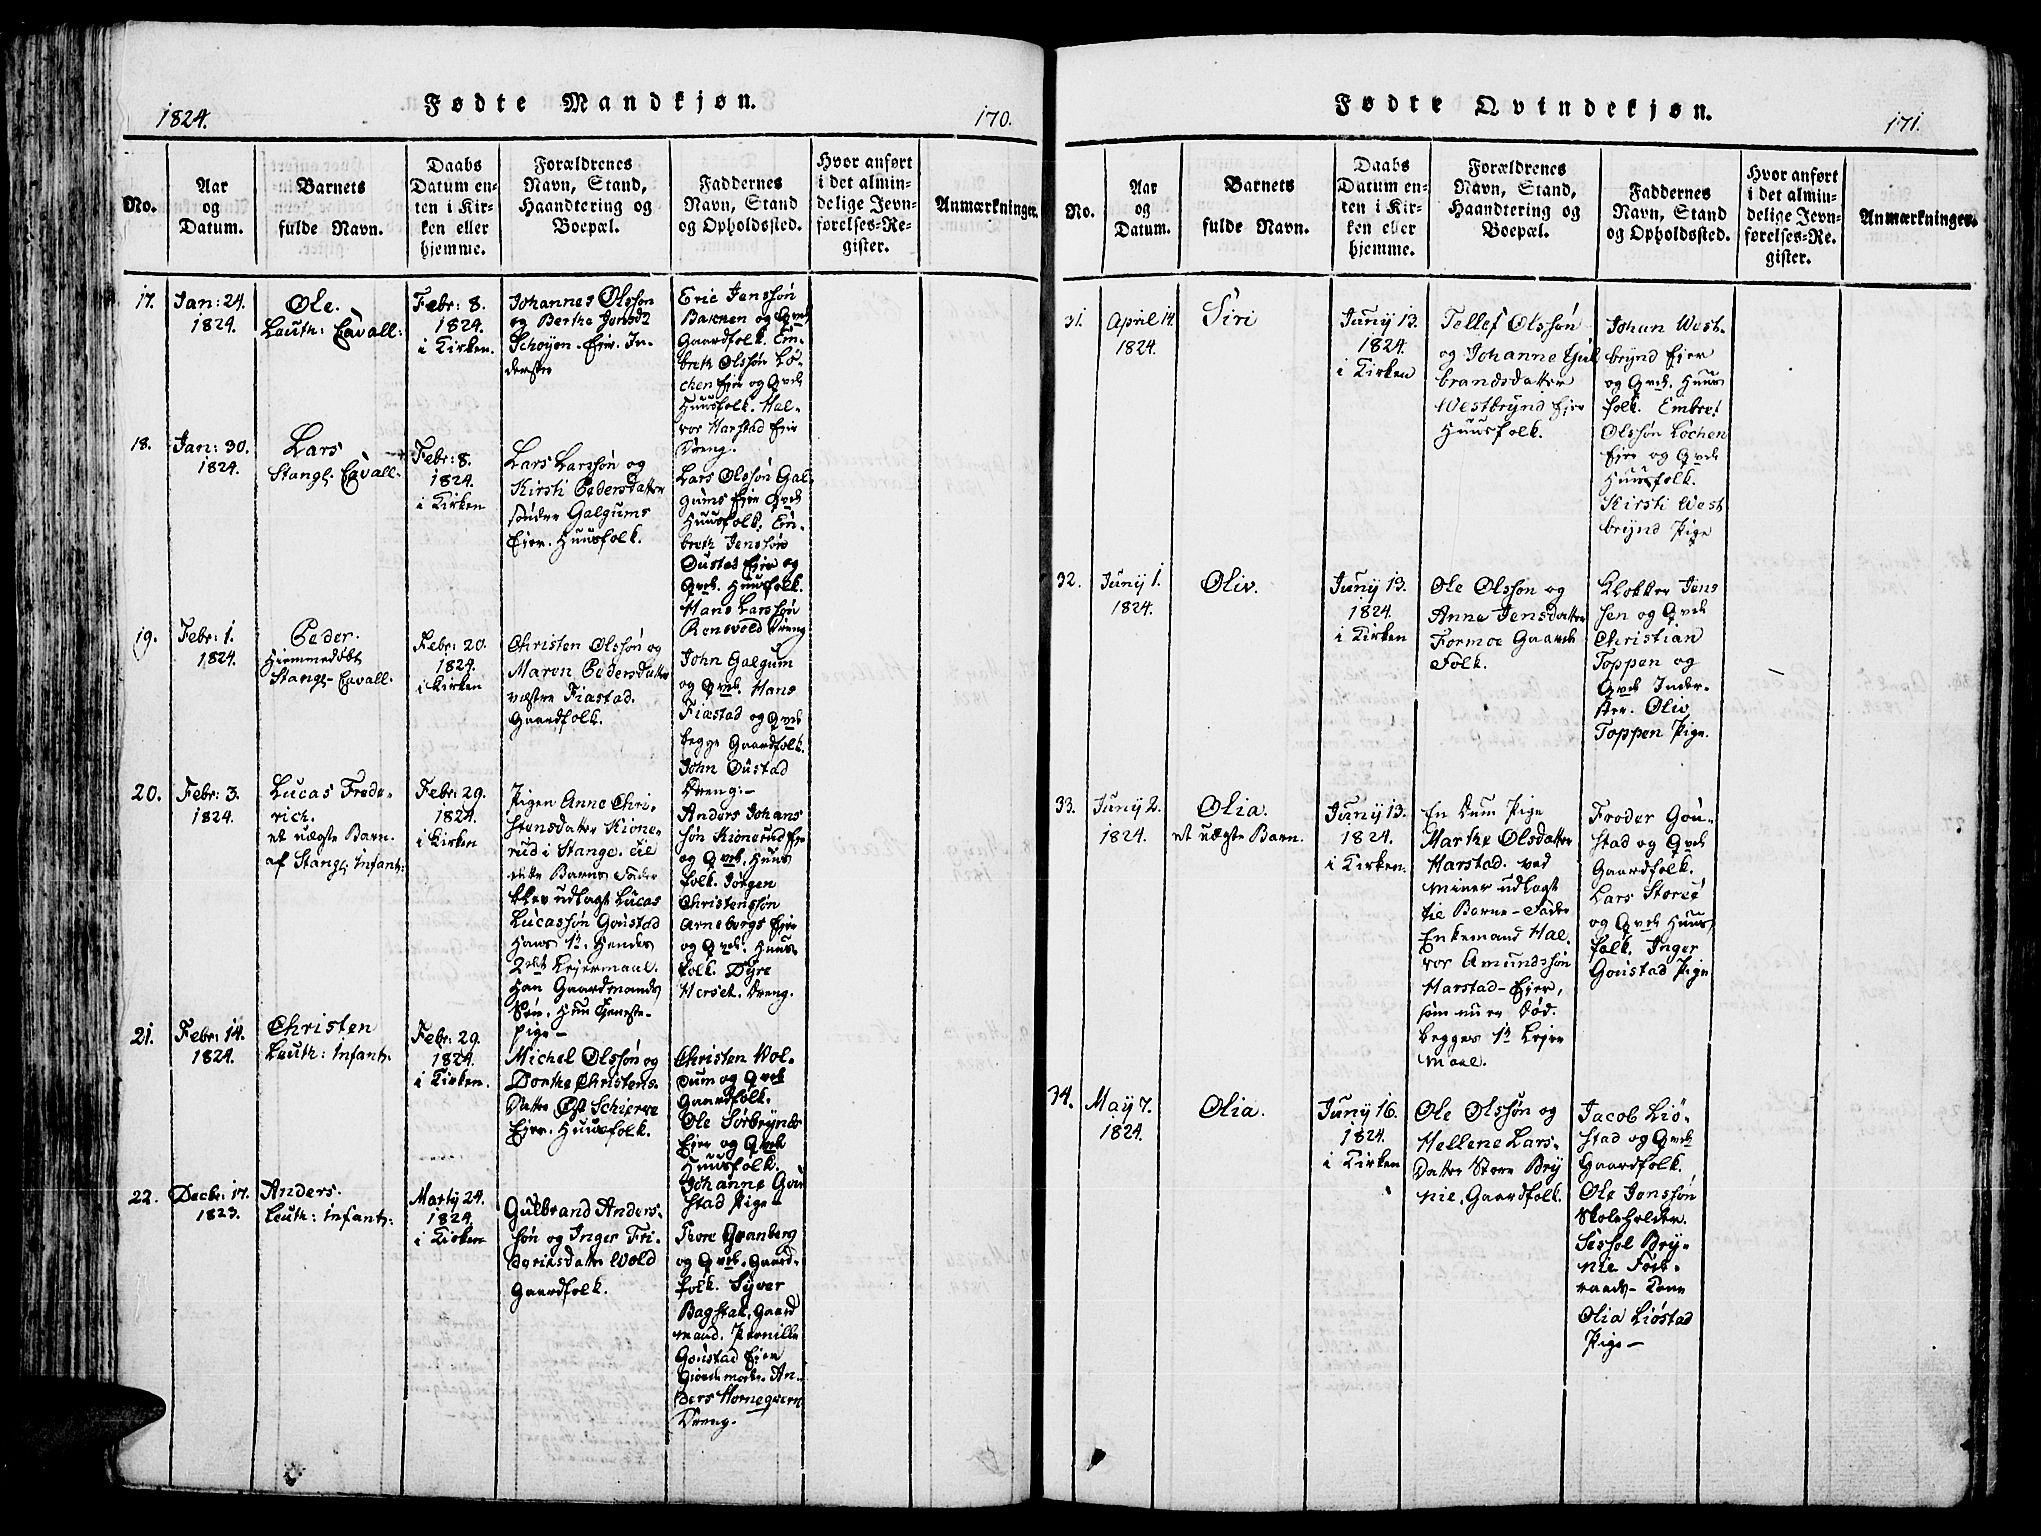 1824.
Fødte Mandkjøn.
170.
No.
Aar
og
Datum.
Barnets
fulde Navn.
Daabs
Datum en-
ten i Kir-
ken eller
hjemme.
Forældrenes
Navn, Stand,
Haandtering og
Boepæl.
Faddernes
Navn, Stand
og Opholdssted.
Hvor anført
i det almin-
delige Jevn-
førelses-Re-
gister.
Anmærkninger.
17.
Jan: 24.
1824.
Ole.
Leuth: Cavall:
Febr: 8.
1824.
i Kirken.
Johannes Olssøn
og Berthe Jensd
Schoÿen. Eier. In-
derster
Eric Jenssøn
Bakken og Qvde
Gaardfolk. Em-
breth Olssøn Lö-
chen Eier og Qvde
Huusfolk. Hal-
vor Harstad Eier
Dreng.
18.
Jan: 30.
1824.
Lars
Stangs. Cavall.
Febr: 8.
1824.
i Kirken
Lars Larssøn og
Kirsti Pedersdatter
søndre Galgums
Eier. Huusfolk.
Lars Olssøn Gal-
gums Eier Qvde
Huusfolk. Em-
breth Jenssøn
Oustas Eier og
Qvde. Huusfolk.
Hans Larssøn
Renevold Dreng
19.
Febr: 1.
1824.
Peder.
Hiemmedøbt
Stangs- Cavall.
Febr: 20.
1824.
i Kirken
Christen Olssøn og
Maren Pedersdatter
væstre Fiæstad.
Gaardfolk.
John Galgum
og Qvde. Hans
Fiæstad og Qvde
begge Gaardfolk.
John Oustad
Dreng.-
20.
Febr: 3.
1824.
Lucas Frede-
rich.
et uægte Barn.
af Stangs Infant:
Febr: 29.
1824.
i Kirken
Pigen Anne Chri-
stensdatter Kione-
rud i Stange. til
dette Barns Fader
blev udlagt Lucas
Lucassøn Goustad
Hans 1te. Hendes
2det Leiermaal.
Han Gaardmands
Søn. Hun Tieneste-
pige-
Anders Johans
søn Kionerud Eier
og Qvde. Huus
folk. Jørgen
Christenssøn
Arnebergs Eier
og Qvde. Huus-
folk. Dyre
Herset. Dreng.
21.
Febr: 14.
1824.
Christen
Leuth: Infant:
Febr: 29.
1824.
i Kirken.
Michel Olssøn og
Dorthe Christens-
Datter Øst Schierre
Eier. Huusfolk.
Christen Vol-
dum og Qvde
Gaardfolk.
Ole Sørbrynds
Eier og Qvde
Huusfolk.
Johanne Gou
stad Pige-
22.
Decbr: 17.
1823.
Anders.
Leuth: Infant:
Martÿ 24.
1824.
i Kirken
Gulbrand Anders-
søn og Inger Fri-
deriksdatter Wold
Gaardfolk.
Thore Granberg
og Qvde. Gaard-
folk. Syver
Bagstak. Gaard
mand. Pernille
Goustad Eier
Giordemoder. An-
ders Hornæqvern
Dreng.
Fødte Qvindekjøn.
171.
No.
Aar
og
Datum.
Barnets
fulde Navn.
Daabs
Datum en-
ten i Kir-
ken eller
hjemme.
Forældrenes
Navn, Stand,
Haandtering og
Boepæl.
Faddernes
Navn, Stand
og Opholdssted.
Hvor anført
i det almin-
delige Jevn-
førelses-Re-
gister.
Anmærkninger.
31.
April 14.
1824.
Siri
Junÿ 13.
1824.
i Kirken
Tellef Olssøn
og Johanne Gul
brandsdatter
Westbrÿnd Eier
Huusfolk.
Johan West-
brÿnd Eier
og Qvde. Huus
folk. Embret
Olssøn Löchen
Eier og Qvde
Huusfolk.
Kirsti West
brÿnd Pige
32.
Junÿ 1.
1824.
Oliv.
Junÿ 13.
1824.
i Kirken
Ole Olssøn og
Anne Jensdatter
Formoe Gaard
Folk.
Klokker Jens
sen og Qvde
Christian
Toppen og
Qvde Inder-
ster. Oliv
Toppen Pige.
33.
Junÿ 2.
1824.
Olia.
et uægte Barn.
Junÿ 13.
1824.
i Kirken.
En Dum Pige
Marthe Olsdatter
Harstad. ved
Miner udlagt
til Barne-Fader
Enkemand Hal-
vor Amundssøn
Harstad-Eier,
som nu er Død.
begges 1te Leier
maal.
Froder Gou-
stad og Qvde
Gaardfolk.
Lars Storeé
og Qvde Huus
folk. Inger
Goustad Pige
34.
Maÿ 7.
1824.
Olia.
Junÿ 16.
1824.
i Kirken
Ole Olssøn og
Hellene Lars-
Datter Store Brÿ
nie. Gaardfolk.
Jacob Liö-
stad og Qvde
Gaardfolk.
Ole Jenssøn
Skoleholder.
Sessel Brÿ-
nie Föd-
raads-Kone
Olia Liöstad
Pige-